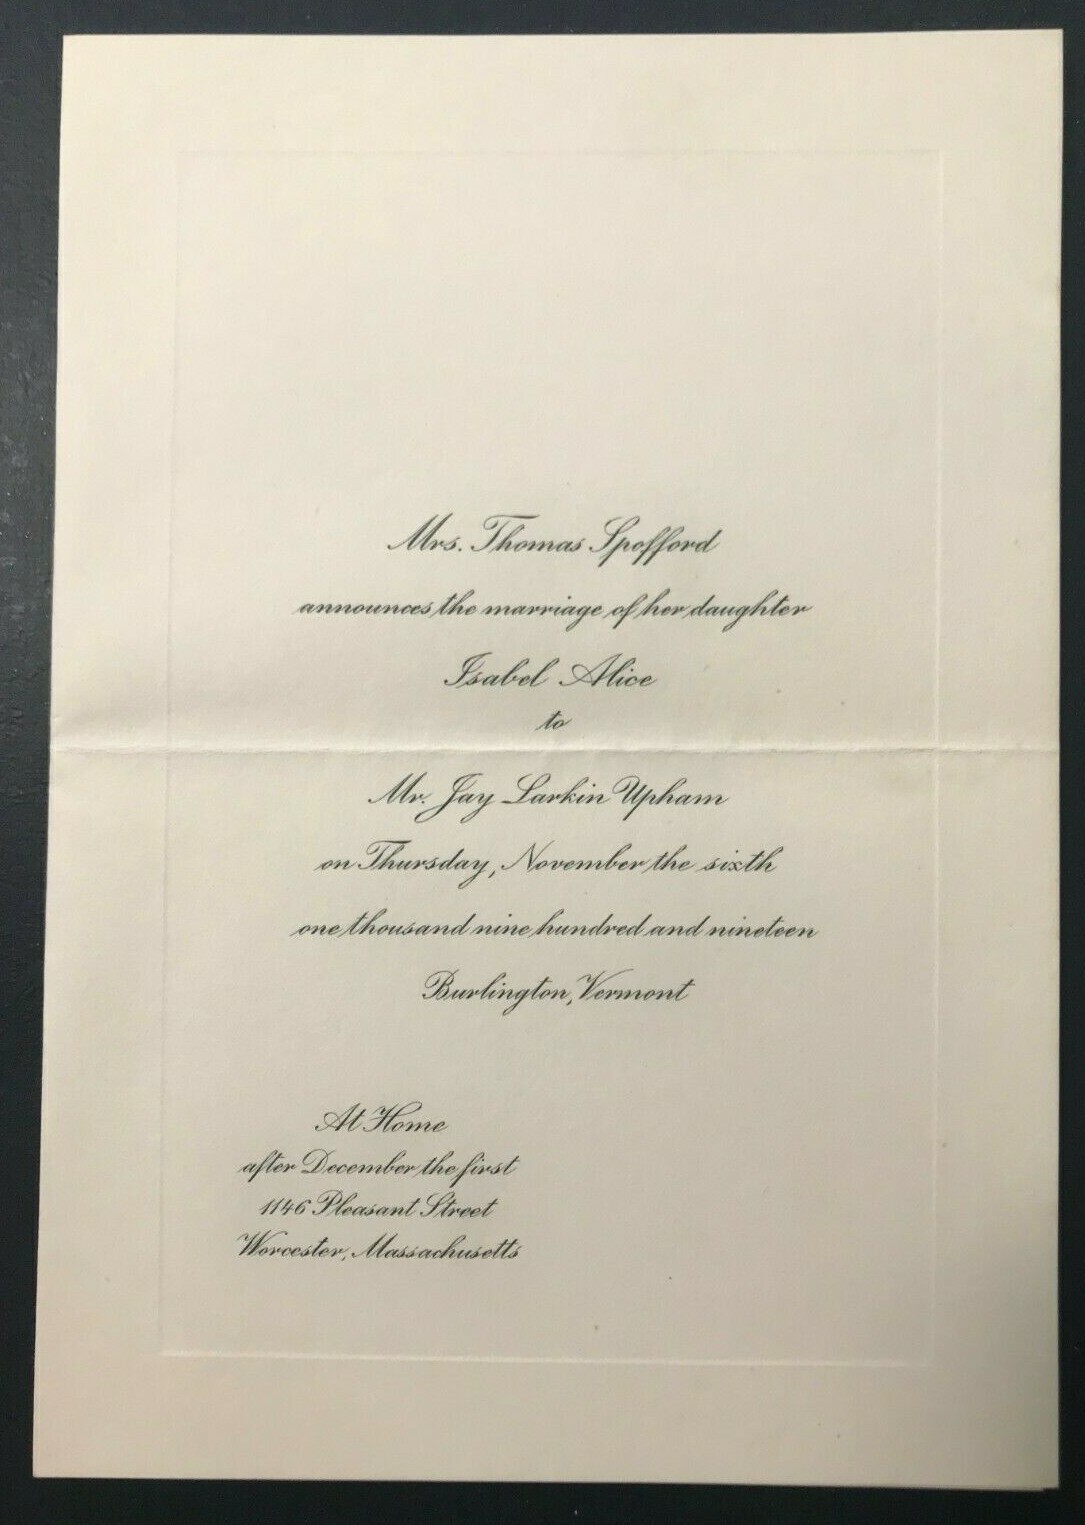 Mrs. Thomas Spofford
announces the marriage of her daughter
Isabel Alice
to
Mr. Jay Larkin Upham
on Thursday, November the sixth
one thousand nine hundred and nineteen
Burlington, Vermont
At Home
after December the first
1146 Pleasant Street
Worcester, Massachusetts